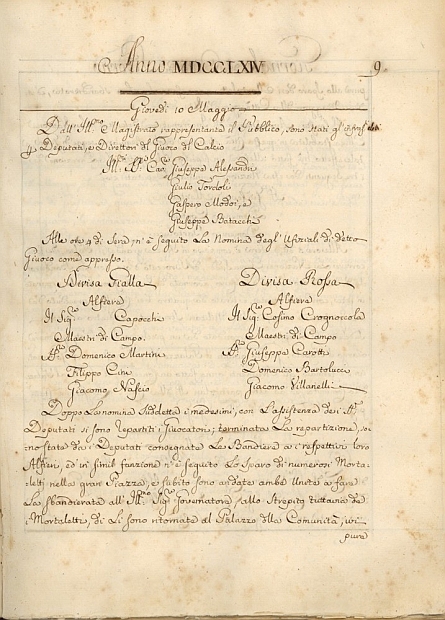 Anno MDCCLXIV
9
Giovedì 10 Maggio
Dall' Ill.mo Magistrato rappresentante il Pubblico, sono stati gl'
p Deputati, e Direttori del Giuoco del Calcio
Ill.mi S.ri Cav. Giuseppe Alessandri
Giulio Tordoli
Gaspero Modoi, e
Giuseppe Batacchi
Alle ore 4 di Sera n'è seguito La Nomina degl' Ufiziali di detto
Giuoco come appresso.
Divisa Gialla
Divisa Rossa
Alfiere
Alfiere
Il Sig.
Capocchi
Il Sig.
Cosimo Crognoccola
Maestri di Campo.
Maestri di Campo
S.ri Domenico Martini
S.ri Giuseppe Carotti
Filippo Cini
Domenico Bartolucci
Giacomo Nascio
Giacomo Villanelli
Doppo La nomina Sud.detta i medesimi, con L'assistenza dei S.ri
Deputati si sono repartiti i Giuocatori; terminata La repartizione, so-
no state da i Deputati consegnate Le Bandiere a i respettivi loro
Alfieri, ed in simil funzione n'è seguito Lo Sparo di numerosi Morta-
letti nella gran Piazza, e subito sono andate ambe Unite a fare
La sbandierata all' Ill.mo Sig. Governatore, allo Strepito tuttavia de
i Mortaletti, di Lì sono ritornate al Palazzo della Comunità, ivi
pure